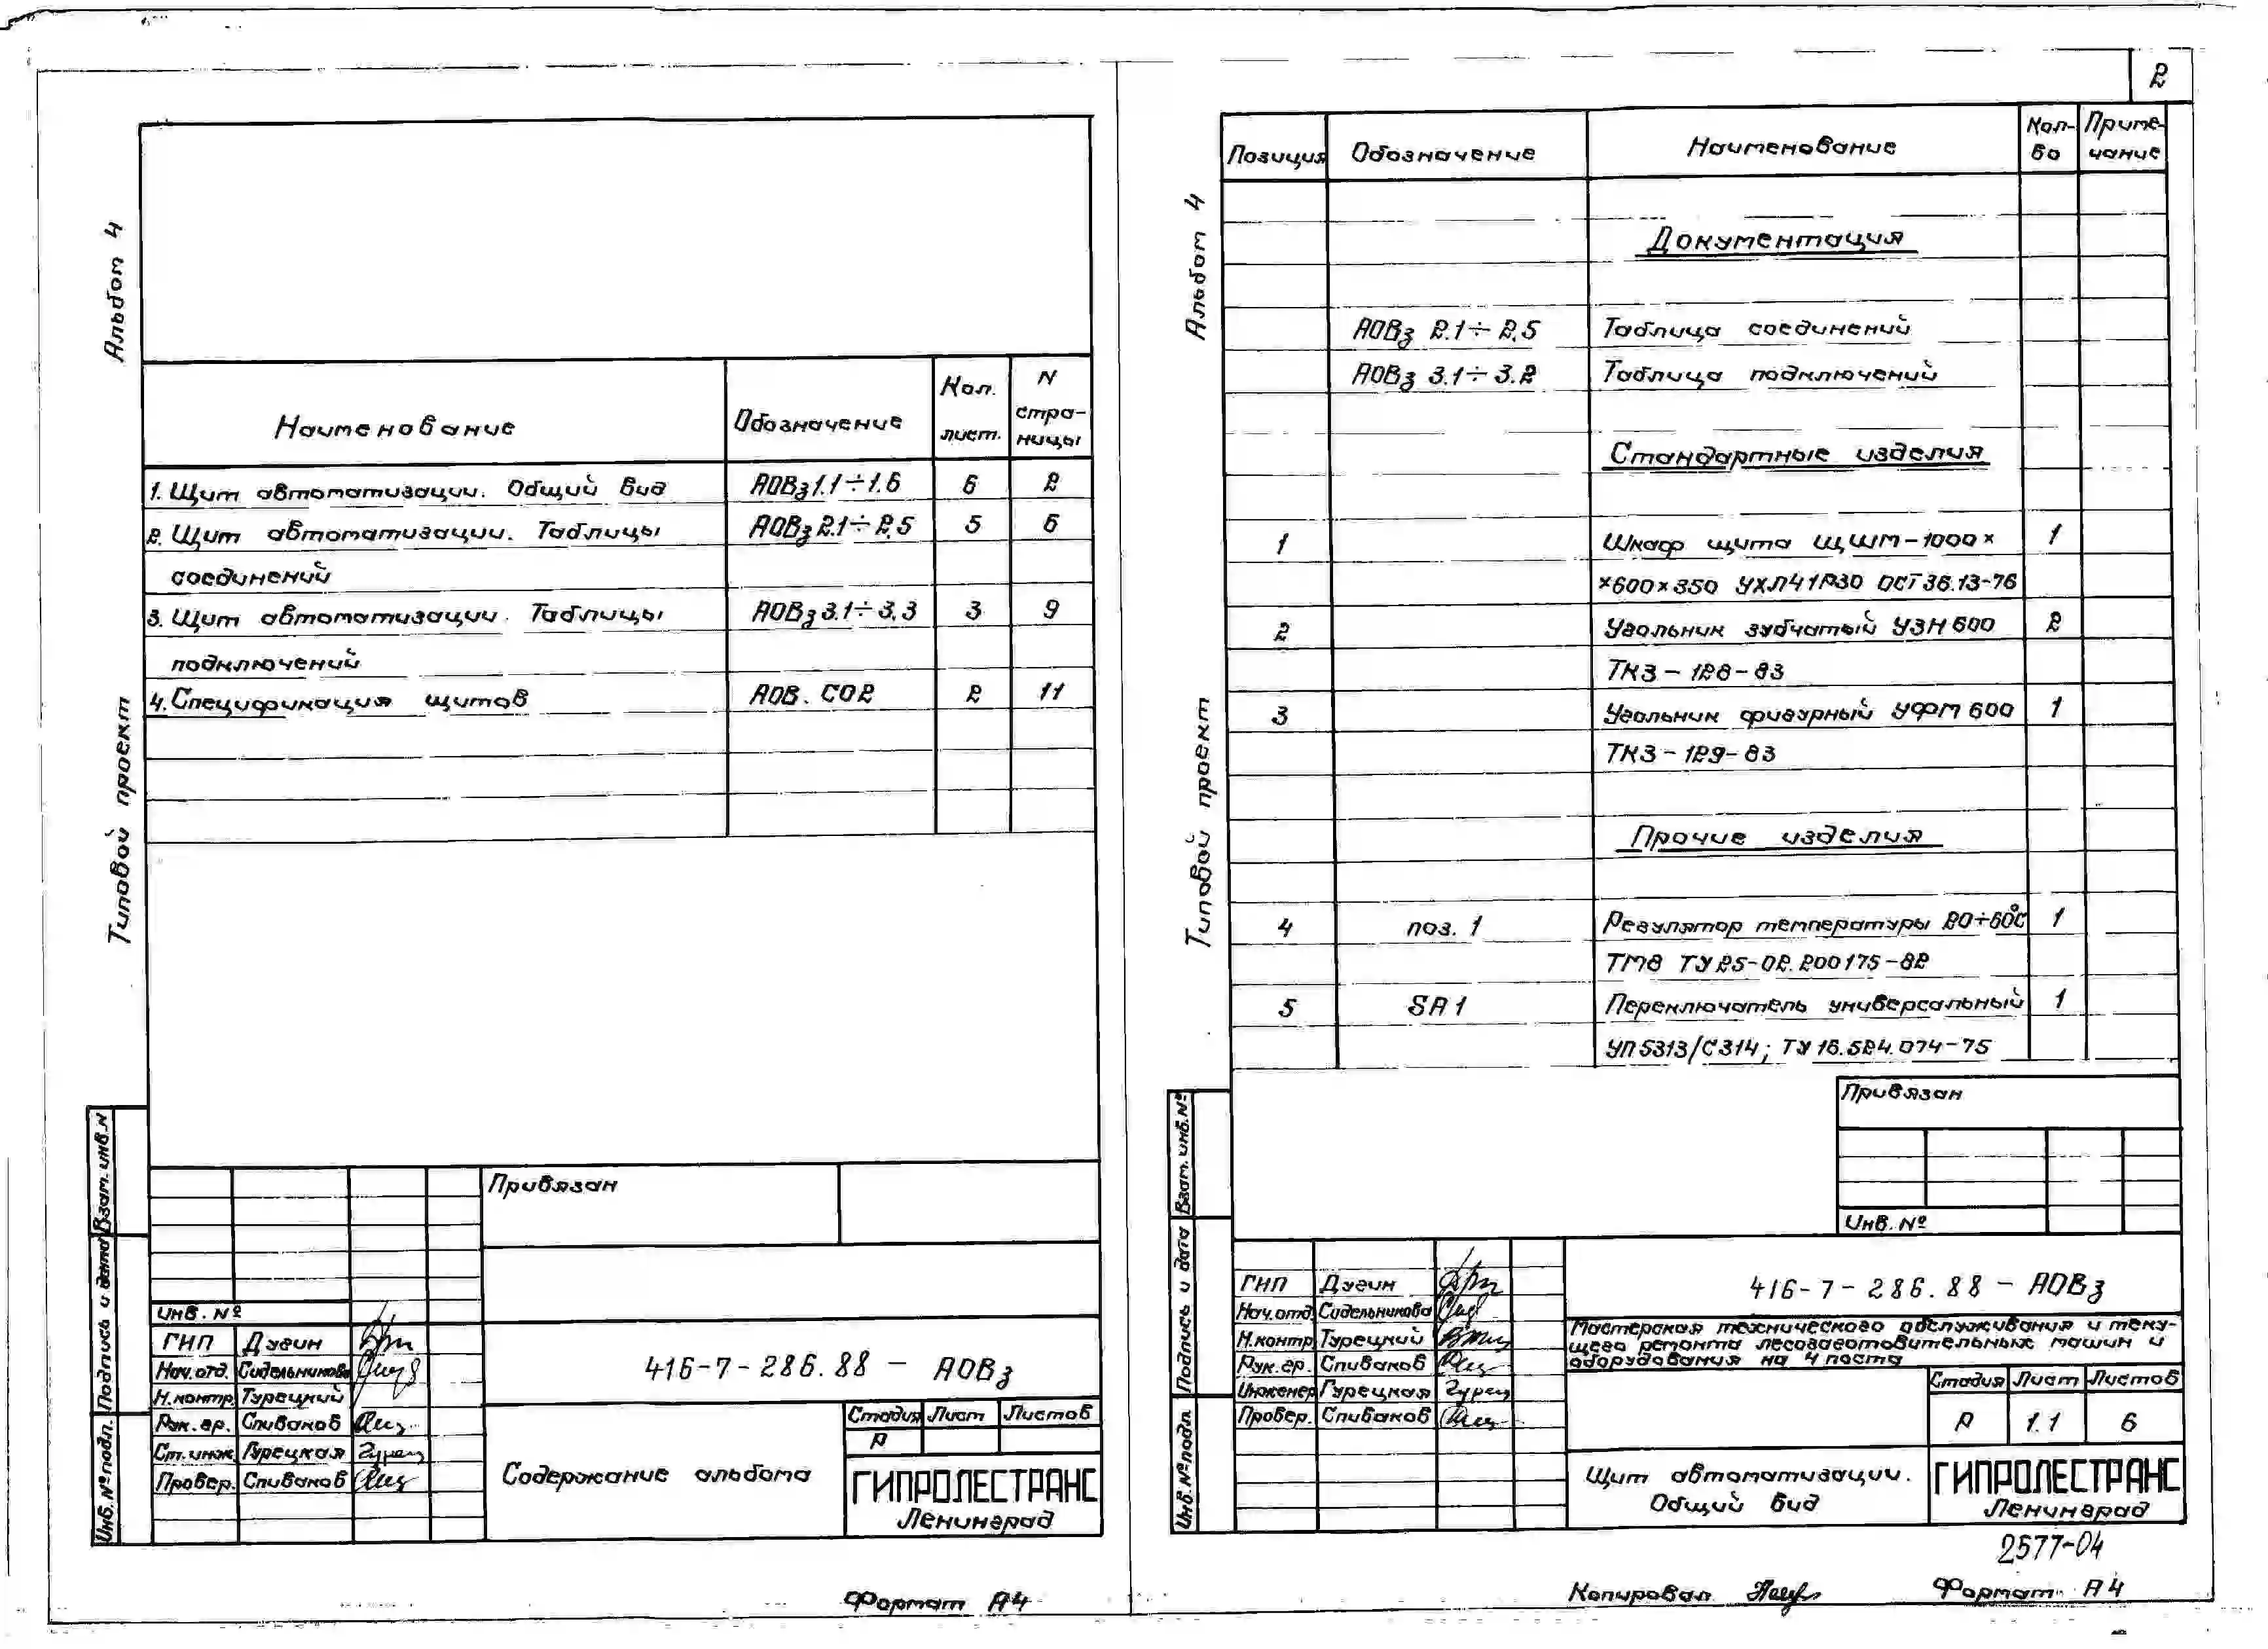 2
Альбом 4
Типовой проект
Наименование
Обозначение
Кол. лист.
N стра-
ницы
1. Щит автоматизации. Общий вид АОВз 1.1÷1.6 6 2
2. Щит автоматизации. Таблицы АОВз 2.1÷2.5 5 6
соединений
3. Щит автоматизации. Таблицы АОВз 3.1÷3.3 3 9
подключений
4. Спецификация щитов АОВ. СО2 2 11
Взам. инв. N
Подпись и дата
Инв. № подл.
Привязан
Инв. №
ГИП Дугин
Нач. отд. Сидельникова
Н. контр. Турецкий
Рук. гр. Спиваков
Ст. инж. Гурецкая
Провер. Спиваков
416-7-286.88 – АОВз
Содержание альбома
Стадия Лист Листов
Р
ГИПРОЛЕСТРАНС
Ленинград
Формат А4
Альбом 4
Типовой проект
Позиция Обозначение Наименование Кол-
во Приме-
чание
Документация
АОВз 2.1÷2.5 Таблица соединений
АОВз 3.1÷3.2 Таблица подключений
Стандартные изделия
1 Шкаф щита ЩШМ-1000× 1
×600×350 УХЛ41Р30 ОСТ36.13-76
2 Угольник зубчатый УЗН600 2
ТК3-128-83
3 Угольник фигурный УФМ600 1
ТК3-129-83
Прочие изделия
4 поз. 1 Регулятор температуры 20÷60°С 1
ТМ8 ТУ25-02.200175-82
5 SA1 Переключатель универсальный 1
УП5313/С314; ТУ16.524.074-75
Взам. инв. №
Подпись и дата
Инв. № подл.
Привязан
Инв. №
ГИП Дугин
Нач. отд. Сидельникова
Н. контр. Турецкий
Рук. гр. Спиваков
Инженер Гурецкая
Провер. Спиваков
416-7-286.88 – АОВз
Мастерская технического обслуживания и теку-
щего ремонта лесозаготовительных машин и
оборудования на 4 поста
Стадия Лист Листов
Р 1.1 6
Щит автоматизации.
Общий вид
ГИПРОЛЕСТРАНС
Ленинград
2577-04
Копировал
Формат А4